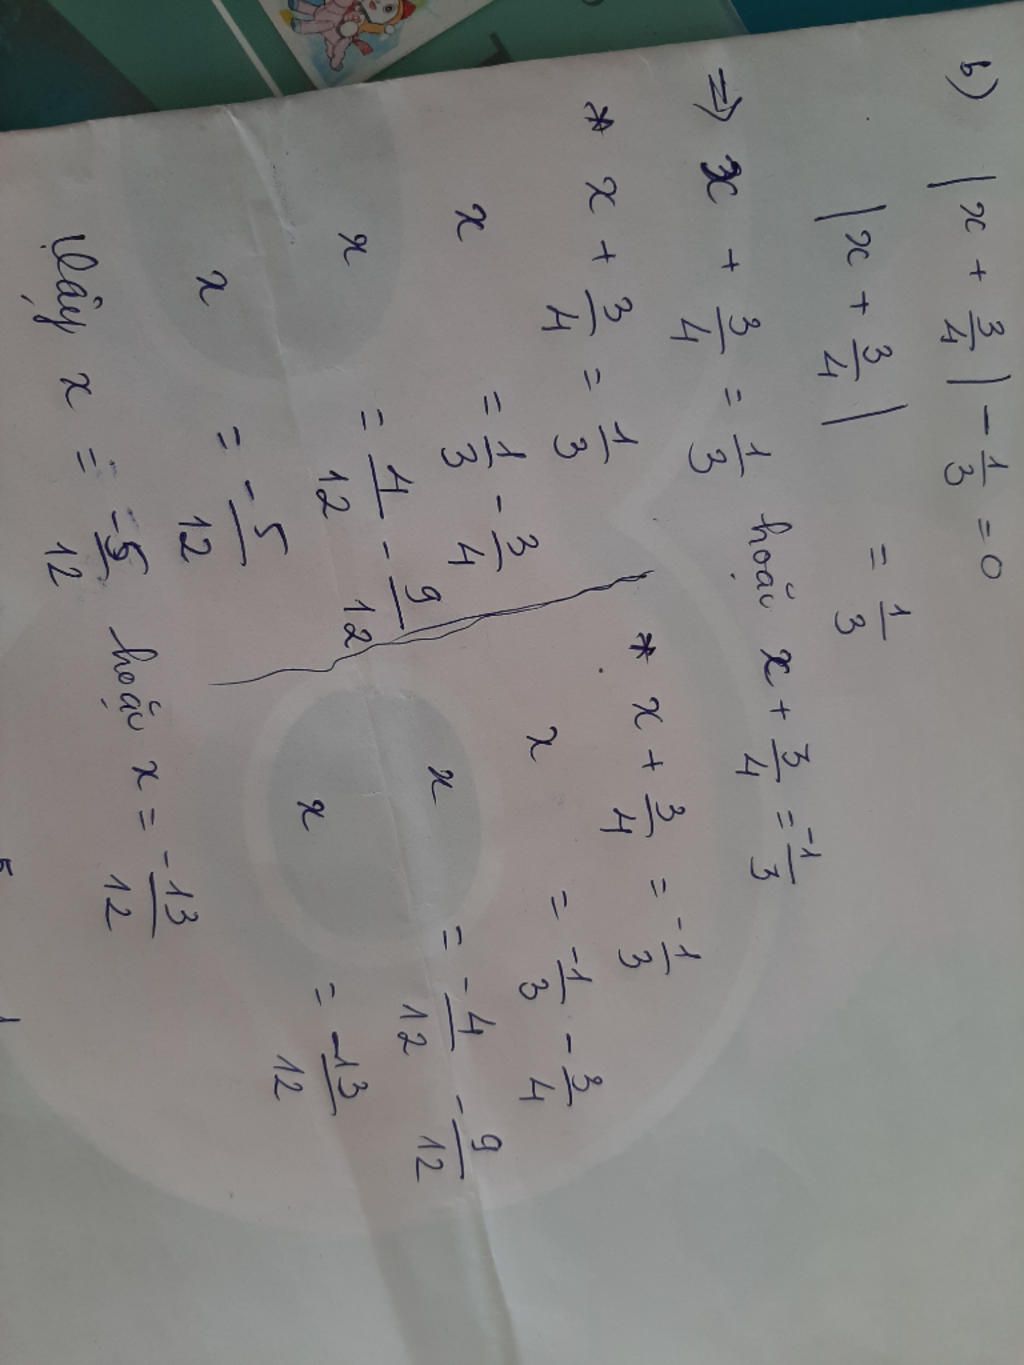 b) |x + 3/4| - 1/3 = 0
|x + 3/4| = 1/3
⇒ x + 3/4 = 1/3 hoặc x + 3/4 = -1/3
* x + 3/4 = 1/3
x = 1/3 - 3/4
x = 4/12 - 9/12
x = -5/12
* x + 3/4 = -1/3
x = -1/3 - 3/4
x = -4/12 - 9/12
x = -13/12
Vậy x = -5/12 hoặc x = -13/12